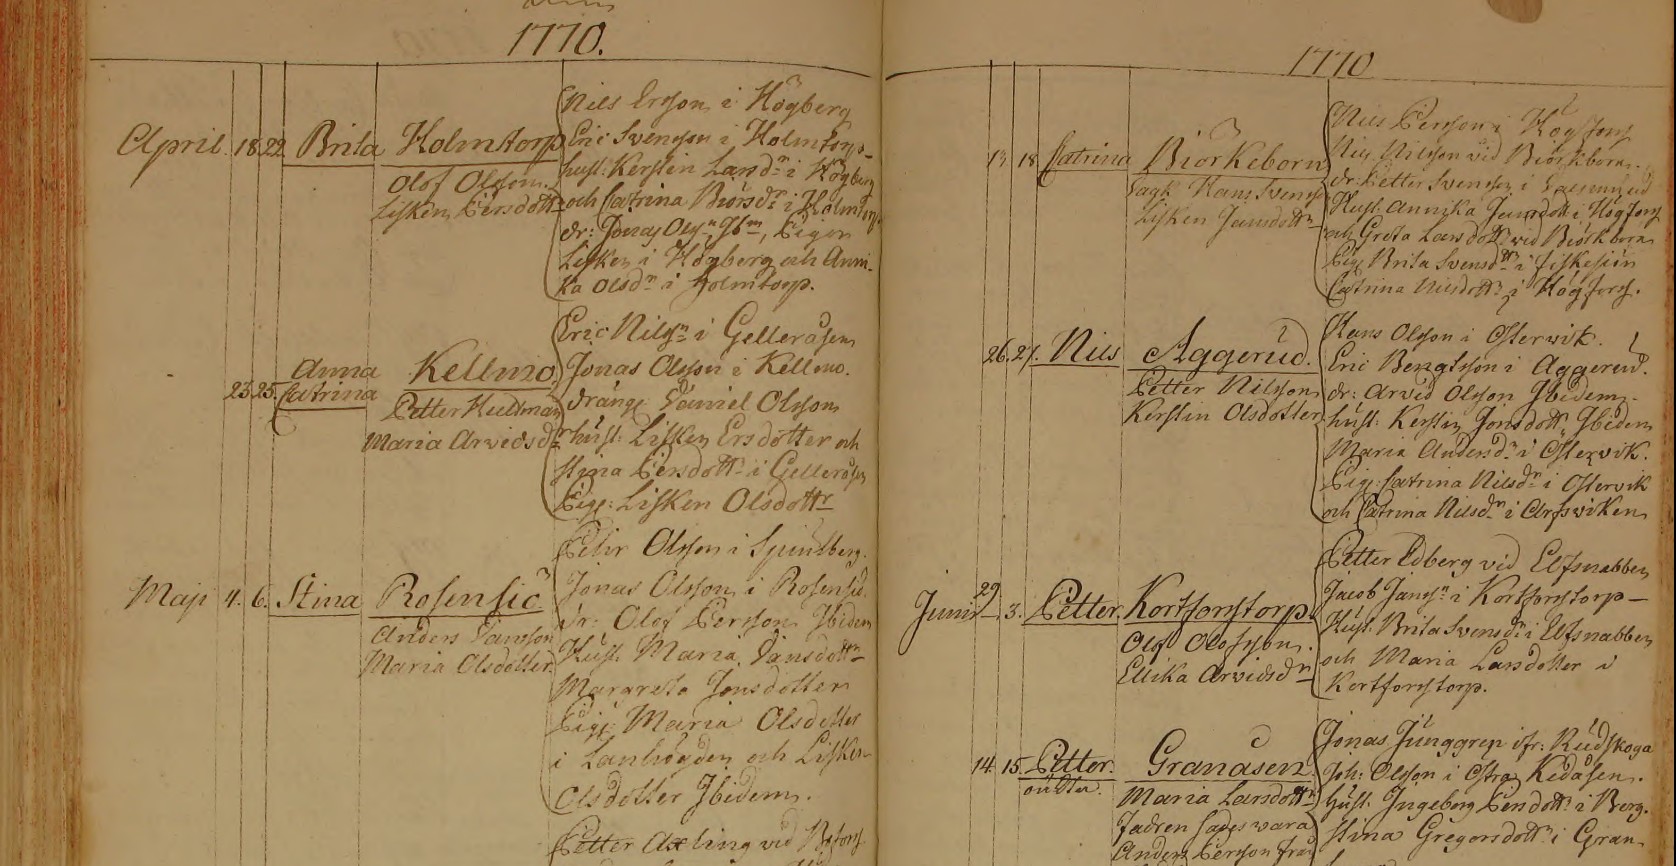 1770.
April 18. 22. Brita Holmtorp
Olof Olsson.
Lisken Persdottr
Nils Ersson i Högberg
Eric Svensson i Holmtorp
hust: Kerstin Larsdr i Högberg
och Catrina Biörsdr i Holmtorp
dr: Jonas Olsn Ibm, Pigor
Lisken i Högberg och Anni-
ka Olsdr i Holmtorp.
23. 25. Anna
Catrina
Kellmo
Petter Huldman
Maria Arvidsdr
Eric Nilsn i Gelleråsen
Jonas Olsson i Kellmo.
dränge Daniel Olsson
hust: Lisken Ersdotter och
Stina Persdottr i Gelleråsen
Pige: Lisken Olsdottr
Maji 4. 6. Stina Rosensiö
Anders Danson
Maria Olsdotter
Pehr Olsson i
Jonas Olsson i Rosensiö.
dr: Olof Persson Ibidem
Hust. Maria Dansdottr
Margreta Jonsdotter
Pige Maria Olsdotter
i Lanhögden och Lisken
Olsdotter Ibidem.
Petter Axling vid
1770
13. 18. Catrina Biörkeborn
Hans Svens
Lisken Jansdottr
Nils Persson i Högfors
Nils Nilsson vid Biörkborn.
dr: Petter Svensson i
Hust: Annika Jansdottr i Högfors
och Greta Larsdottr vid Biörkborn
Pig Brita Svensdr i Fiskesiön
Catrina Nilsdottr i Högfors.
26. 27. Nils Aggerud.
Petter Nilsson
Kerstin Olsdotter
Hans Olsson i Osterwik.
Eric Bengtsson i Aggerud.
dr: Arvid Olsson Ibidem.
hust: Kerstin Jonsdottr Ibidem
Maria Andersdr i Osterwik.
Pige: Catrina Nilsdr i Osterwik
och Catrina Nilsdr i Arfswiken
29
Junii 3. Petter. Kortforstorp.
Olof Olofsson.
Ellika Arvidsdr
Petter Edberg vid Elfsnabben
Jacob Jansn i Kortforstorp
Hust. Brita Svensdr i Elfsnabben
och Maria Larsdotter i
Kortforstorp.
14. 15. Petter.
oäkta.
Granåsen
Maria Larsdottr
Fadren säges wara
Anders Persson från
Jonas Junggren ifr: Rudskoga
Joh: Olsson i Östra Kedåsen.
Hust. Ingeborg Persdottr i Berg.
Stina Gregorsdottr i Gran